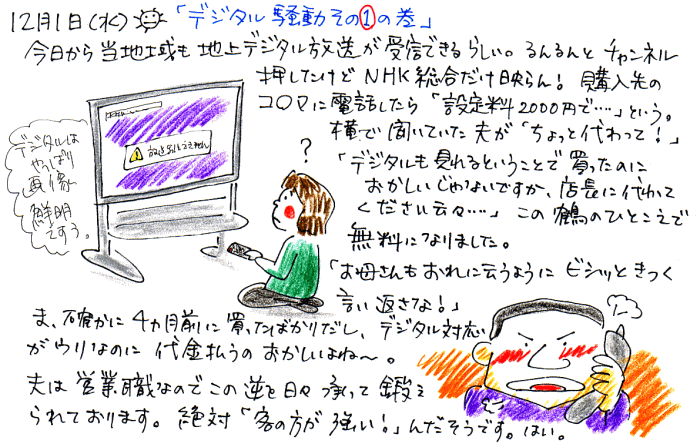 12月1日(水) 「デジタル騒動その1の巻」
今日から当地域も地上デジタル放送が受信できるらしい。るんるんとチャンネル
押したけどNHK総合だけ映らん！購入先の
コロマに電話したら「設定料2000円で‥‥」という。
横で聞いていた夫が「ちょっと代わって！」
「デジタルも見れるということで買ったのに
おかしいじゃないですか、店長に代わって
ください云々‥‥」この鶴のひとこえで
無料になりました。
「お母さんもおれに云うようにビシッときつく
言い返さな！」
ま、確かに4カ月前に買ったばかりだし、デジタル対応
がウリなのに代金払うのおかしいよね〜。
夫は営業職なのでこの逆を日々承って鍛え
られております。絶対「客の方が強い！」んだそうです。はい。
デジタルは
やっぱり
画像
鮮明
ですう。
?